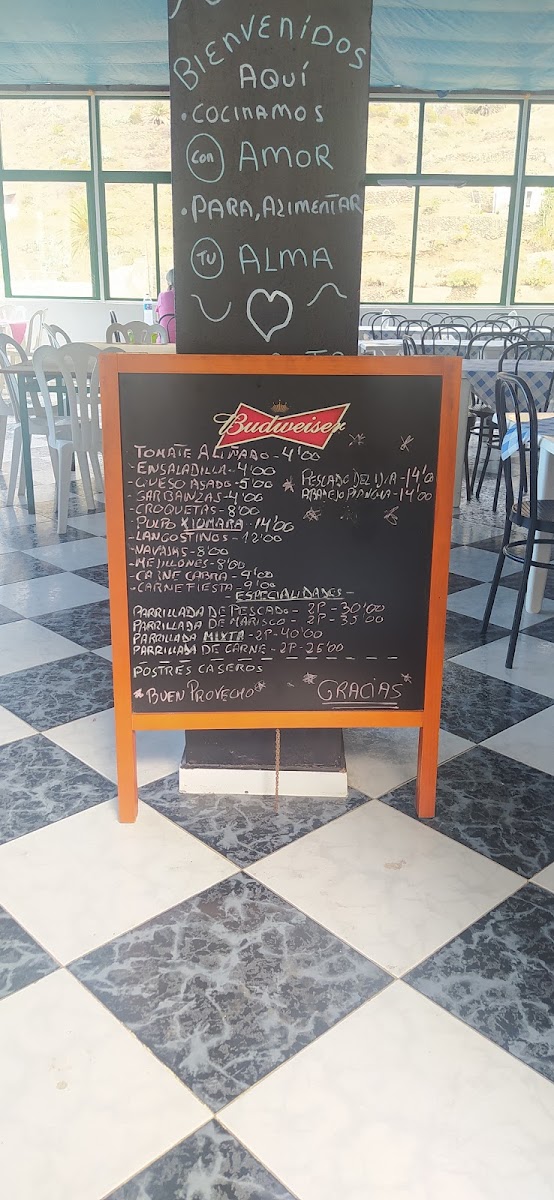 BIENVENIDOS
AQUÍ
• COCINAMOS
Con AMOR
• PARA, ALIMENTAR
TU ALMA
Budweiser
TOMATE ALIÑADO - 4'00
- ENSALADILLA - 4'00
- QUESO ASADO - 5'00
- GARBANZAS - 4'00
- CROQUETAS - 8'00
- PULPO XIOMARA - 14'00
- LANGOSTINOS - 12'00
- NAVAJAS - 8'00
- MEJILLONES - 8'00
- CARNE CABRA - 9'00
- CARNE FIESTA - 9'00
PESCADO DEL DIA - 14'00
ABADEJO - 14'00
ESPECIALIDADES -
PARRILLADA DE PESCADO - 2P - 30'00
PARRILLADA DE MARISCO - 2P - 35'00
PARRILLADA MIXTA - 2P - 40'00
PARRILLADA DE CARNE - 2P - 25'00
POSTRES CASEROS
BUEN PROVECHO
GRACIAS